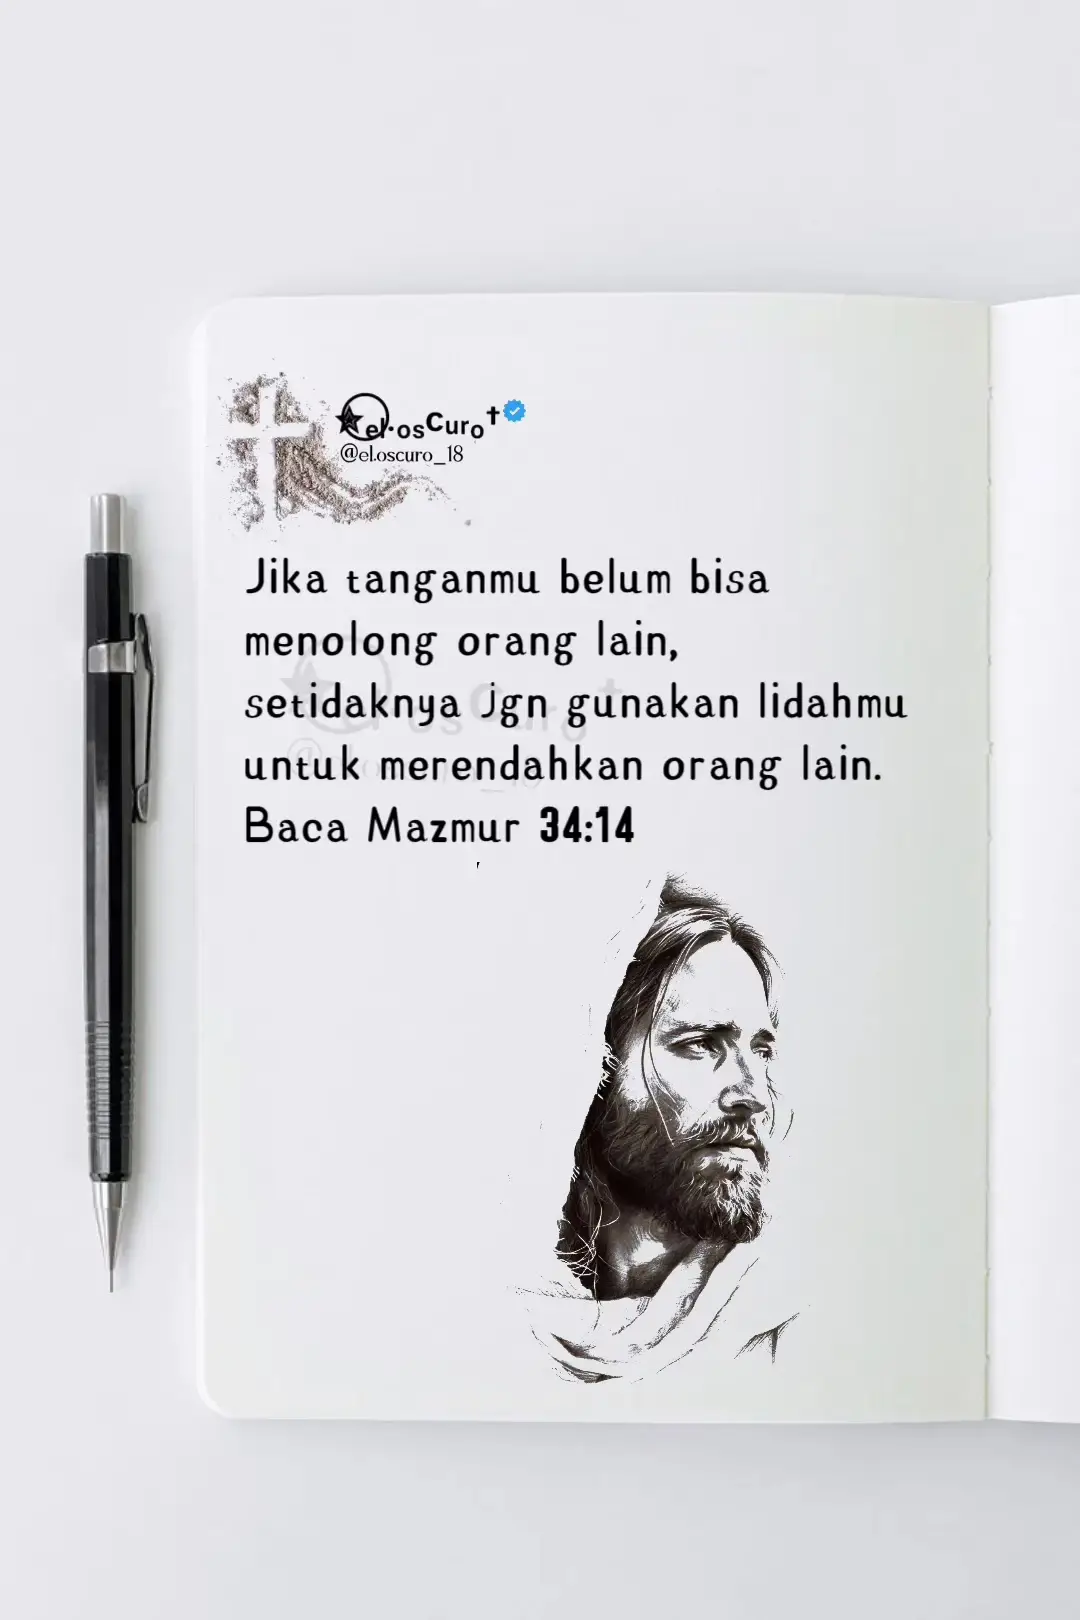 el.oscuro✝
@el.oscuro_18
Jika tanganmu belum bisa
menolong orang lain,
setidaknya jgn gunakan lidahmu
untuk merendahkan orang lain.
Baca Mazmur 34:14
el.oscuro✝
@el.oscuro_18